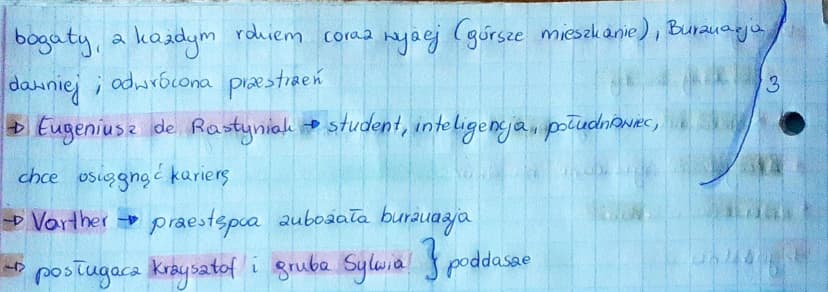 bogaty, a każdym rokiem coraz wyżej (górsze mieszkanie), Burżuazja
dawniej ; odwrócona przestrzeń
3
→ Eugeniusz de Rastyniak → student, inteligencja, południowiec,
chce osiągnąć karierę
→ Varther → przestępca zubożała burżuazja
→ posługacz Krzysztof i gruba Sylwia } poddasze